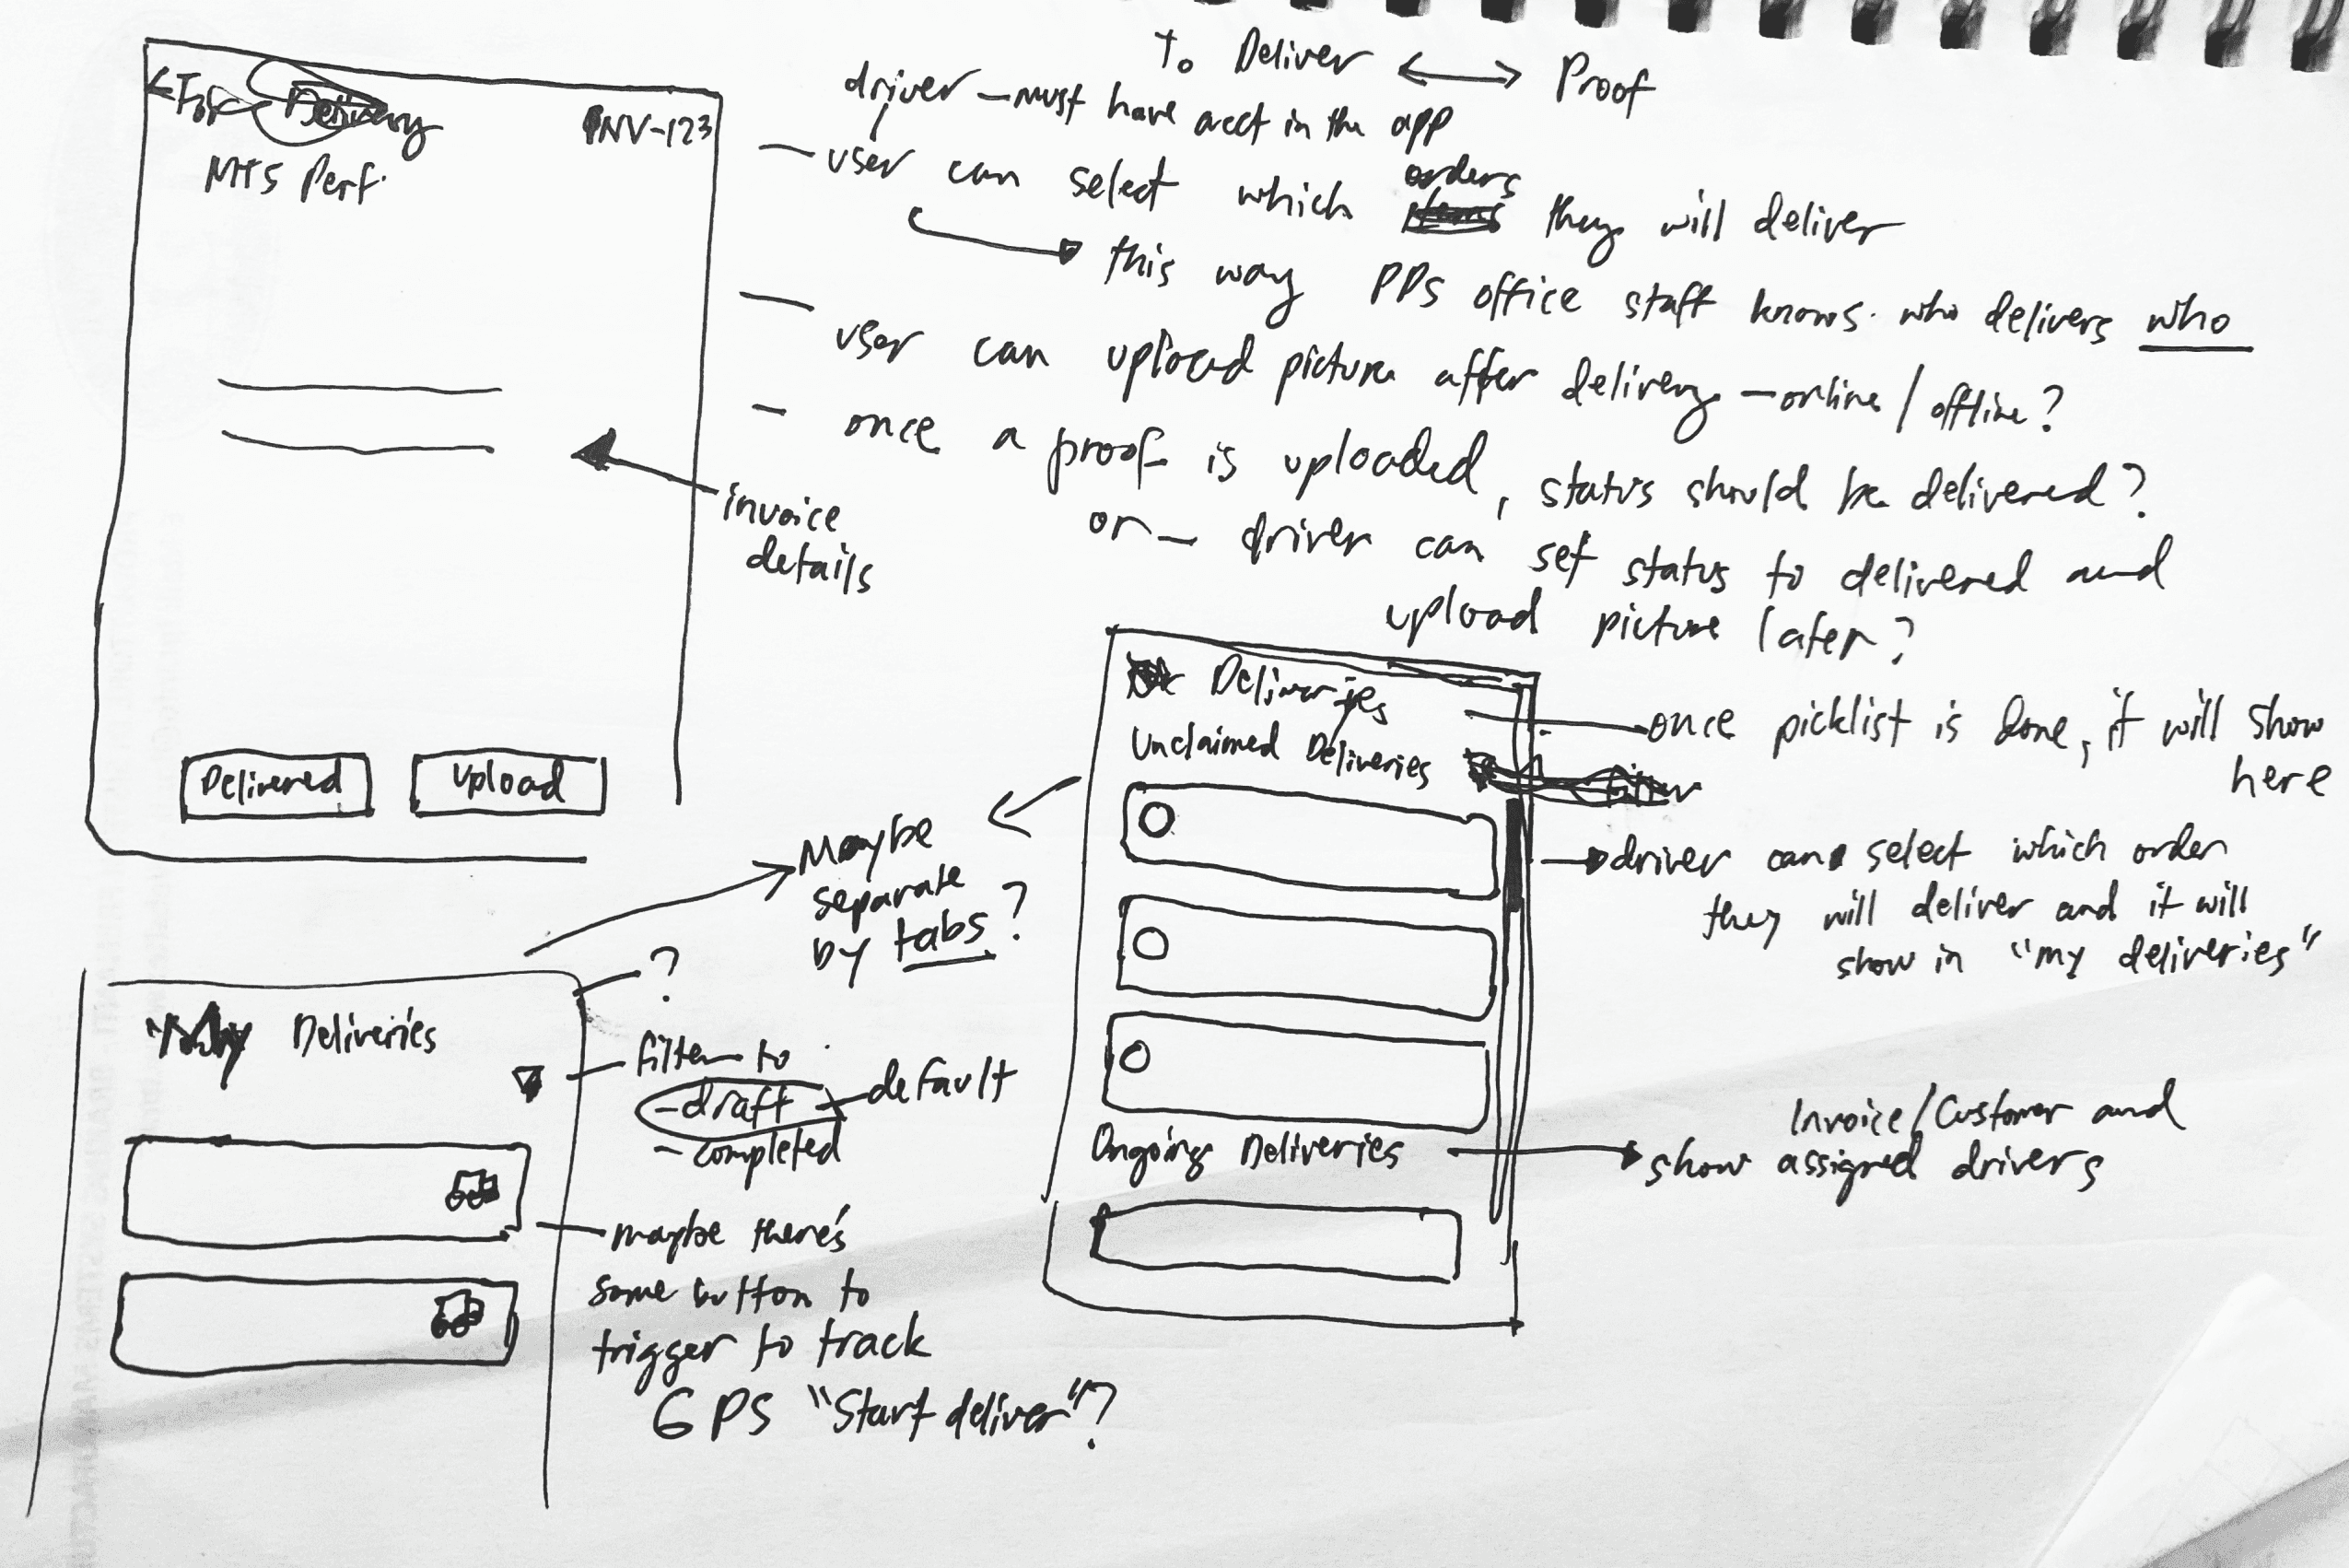 To Deliver ⟷ Proof
driver – must have acct in the app
– user can select which orders they will deliver
this way PPS office staff knows who delivers who
– user can upload picture after delivery – online / offline?
– once a proof is uploaded, status should be delivered?
or – driver can set status to delivered and
upload picture later?
Delivery
INV-123
MTS Perf.
invoice
details
Delivered
Upload
Deliveries
Unclaimed Deliveries
once picklist is done, it will show
here
driver can select which order
they will deliver and it will
show in "my deliveries"
Ongoing Deliveries
Invoice/Customer and
show assigned drivers
Maybe
separate
by tabs?
My Deliveries
?
filter to
– draft – default
– completed
maybe there's
some button to
trigger to track
GPS "Start deliver"?